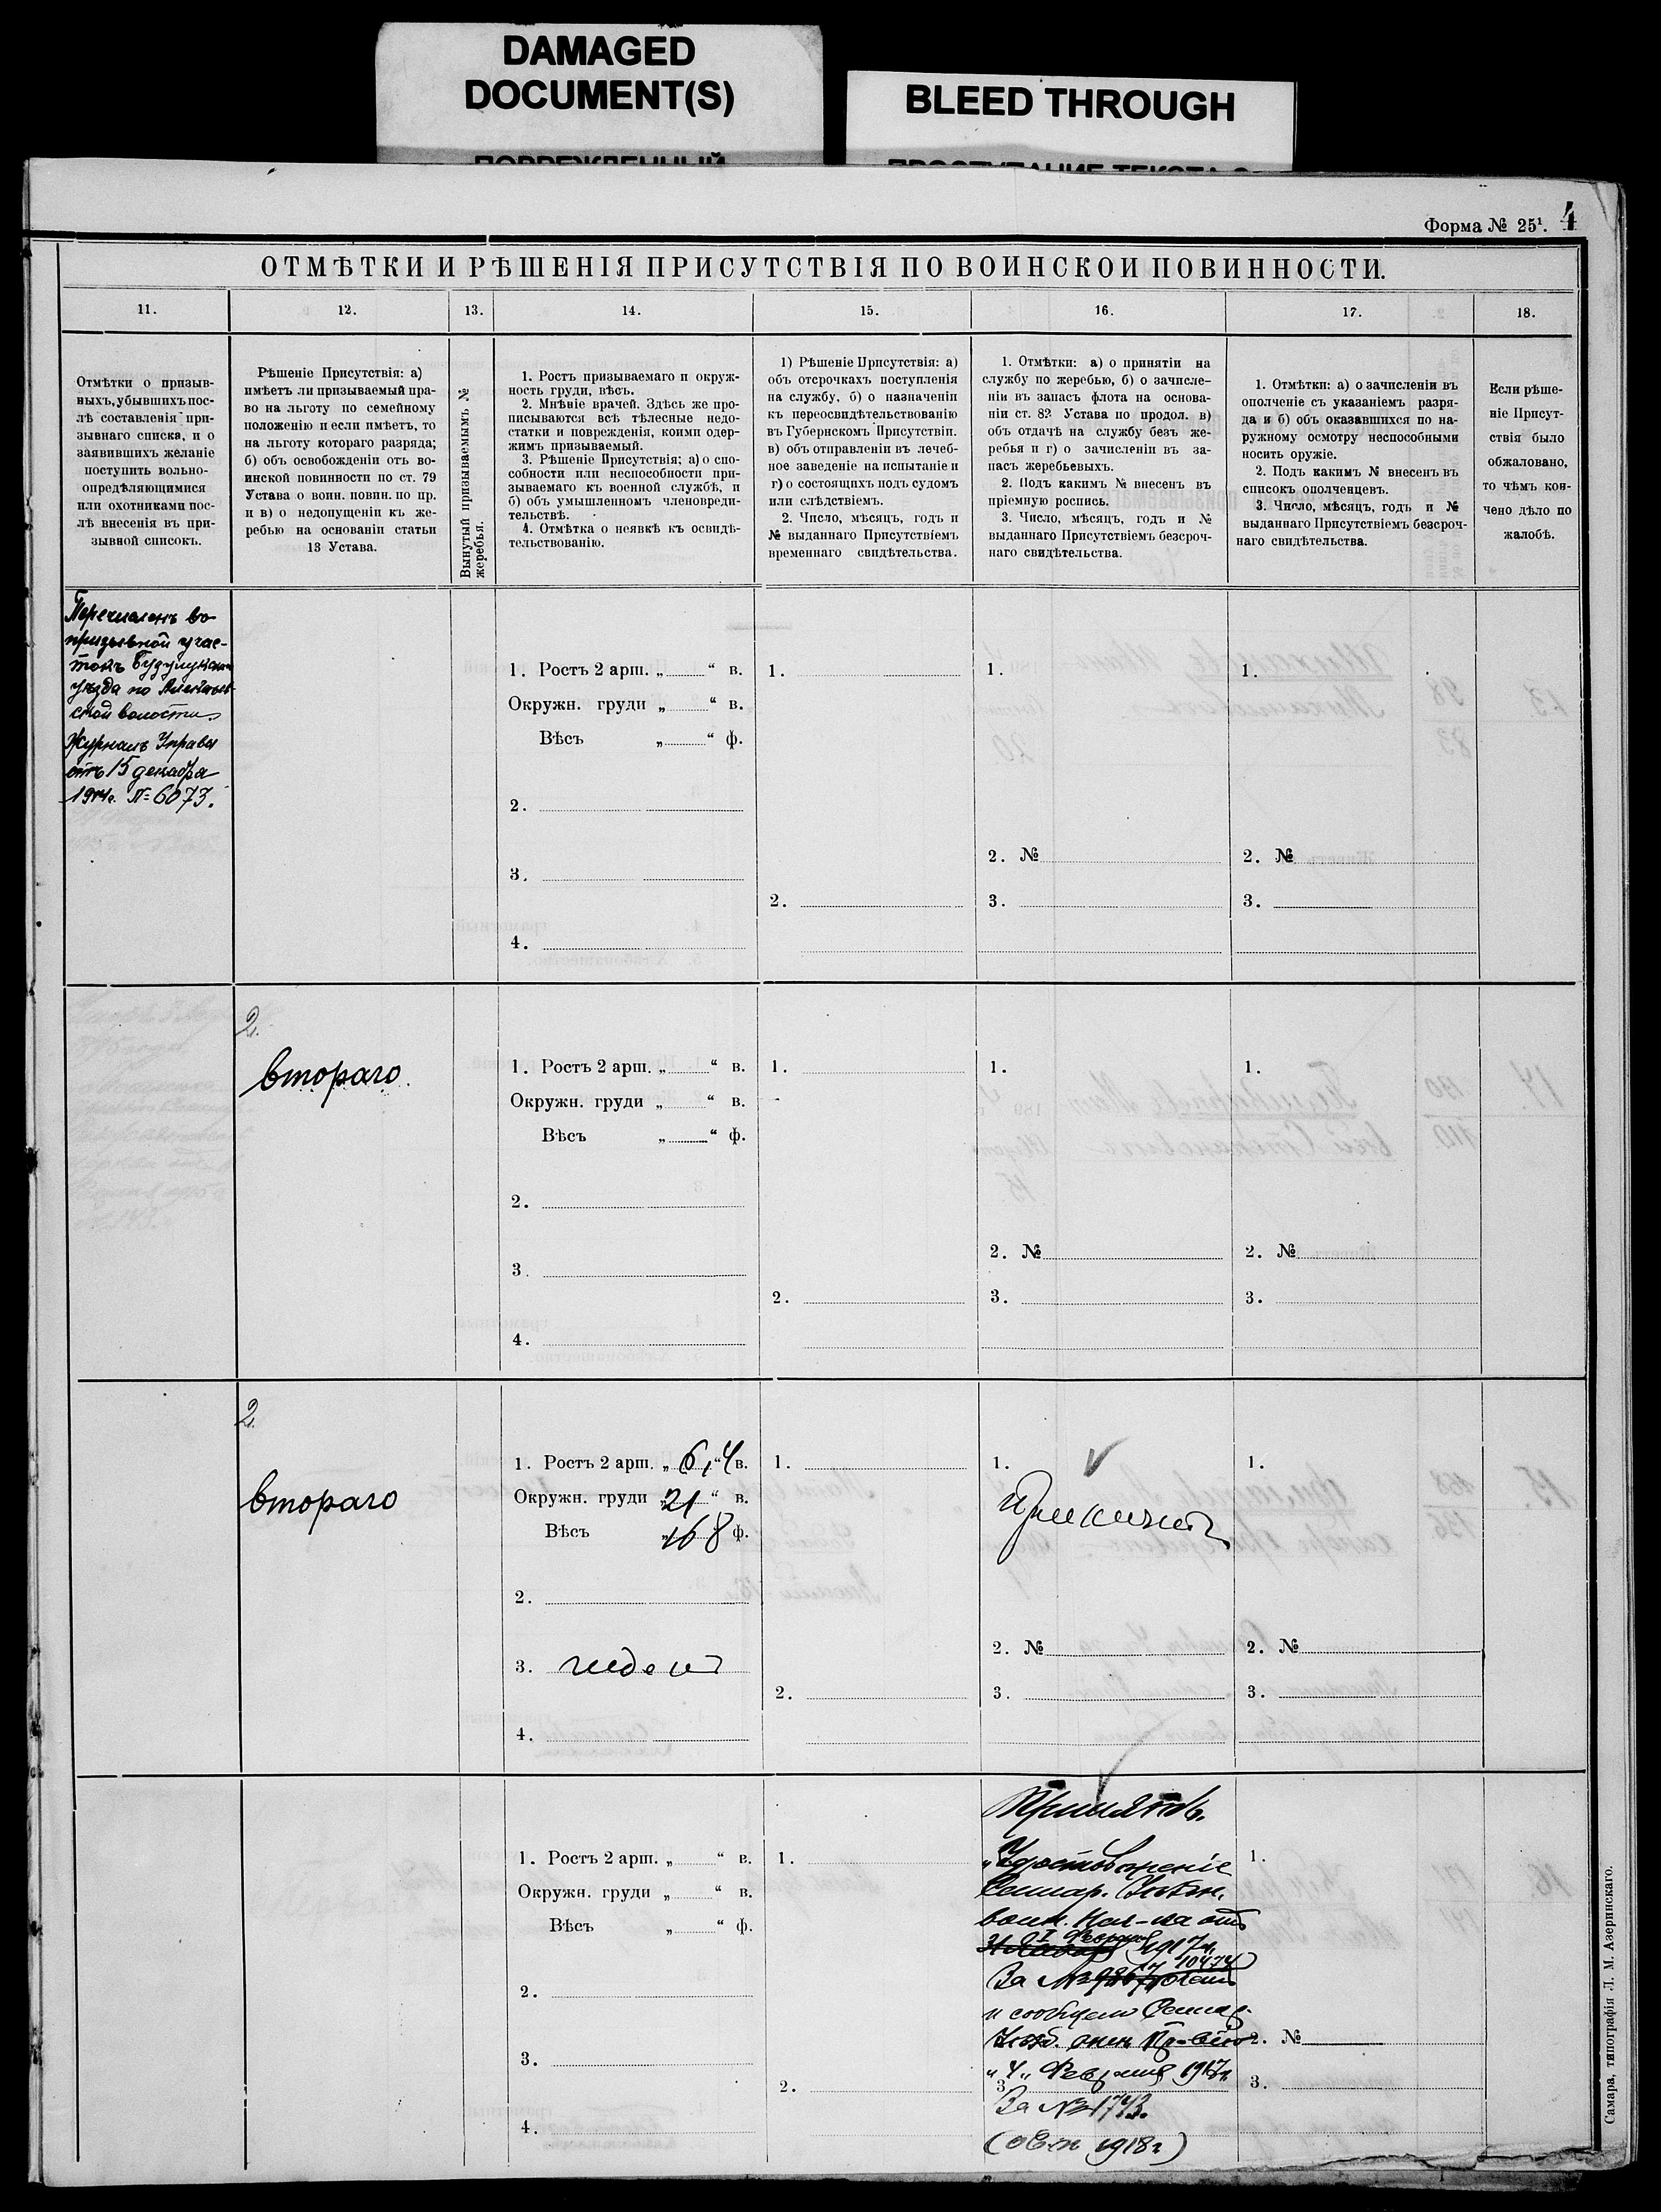 DAMAGED
DOCUMENT(S)
BLEED THROUGH
Форма № 25¹. 4
ОТМѢТКИ И РѢШЕНІЯ ПРИСУТСТВІЯ ПО ВОИНСКОЙ ПОВИННОСТИ.
11.
12.
13.
14.
15.
16.
17.
18.
Отмѣтки о призыв-
ныхъ, убывшихъ пос-
лѣ составленія при-
зывнаго списка, и о
заявившихъ желаніе
поступить вольно-
опредѣляющимися
или охотниками пос-
лѣ внесенія въ при-
зывной списокъ.
Рѣшеніе Присутствія: а)
имѣетъ ли призываемый пра-
во на льготу по семейному
положенію и если имѣетъ, то
на льготу котораго разряда;
б) объ освобожденіи отъ во-
инской повинности по ст. 79
Устава о воин. повин. по пр.
и в) о недопущеніи къ же-
ребью на основаніи статьи
13 Устава.
Вынутый призываемымъ №
жеребья.
1. Ростъ призываемаго и окруж-
ность груди, вѣсъ.
2. Мнѣніе врачей. Здѣсь же про-
писываются всѣ тѣлесные недо-
статки и поврежденія, коими одер-
жимъ призываемый.
3. Рѣшеніе Присутствія; а) о спо-
собности или неспособности при-
зываемаго къ военной службѣ, и
б) объ умышленномъ членовреди-
тельствѣ.
4. Отмѣтка о неявкѣ къ освидѣ-
тельствованію.
1) Рѣшеніе Присутствія: а)
объ отсрочкахъ поступленія
на службу, б) о назначеніи
къ переосвидѣтельствованію
въ Губернскомъ Присутствіи.
в) объ отправленіи въ лечеб-
ное заведеніе на испытаніе и
г) о состоящихъ подъ судомъ
или слѣдствіемъ.
2. Число, мѣсяцъ, годъ и
№ выданнаго Присутствіемъ
временнаго свидѣтельства.
1. Отмѣтки: а) о принятіи на
службу по жеребью, б) о зачисле-
ніи въ запасъ флота на основа-
ніи ст. 82 Устава по продол. в)
объ отдачѣ на службу безъ же-
ребья и г) о зачисленіи въ за-
пасъ жеребьевыхъ.
2. Подъ какимъ № внесенъ въ
пріемную роспись.
3. Число, мѣсяцъ, годъ и №
выданнаго Присутствіемъ безсроч-
наго свидѣтельства.
1. Отмѣтки: а) о зачисленіи въ
ополченіе съ указаніемъ разря-
да и б) объ оказавшихся по на-
ружному осмотру неспособными
носить оружіе.
2. Подъ какимъ № внесенъ въ
списокъ ополченцевъ.
3. Число, мѣсяцъ, годъ и №
выданнаго Присутствіемъ безсроч-
наго свидѣтельства.
Если рѣше-
ніе Присут-
ствія было
обжаловано,
то чѣмъ кон-
чено дѣло по
жалобѣ.
Перечисленъ во
призывной учас-
токъ Бузулукскаго
уѣзда по
ской волости
Журналъ Управы
отъ 15 декабря
1914 г. № 6073.
1. Ростъ 2 арш. „ “ в.
Окружн. груди „ “ в.
Вѣсъ „ “ ф.
2.
3.
4.
1.
2.
1.
2. №
3.
1.
2. №
3.
2.
втораго
1. Ростъ 2 арш. „ “ в.
Окружн. груди „ “ в.
Вѣсъ „ “ ф.
2.
3.
4.
1.
2.
1.
2. №
3.
1.
2. №
3.
2
втораго
1. Ростъ 2 арш. „ 6,4 “ в.
Окружн. груди „ 21 “ в.
Вѣсъ „ 168 ф.
2.
3. годенъ
4.
1.
2.
1.
2. №
3.
1.
2. №
3.
1. Ростъ 2 арш. „ “ в.
Окружн. груди „ “ в.
Вѣсъ „ “ ф.
2.
3.
4.
1.
2.
Принятъ.
Удостовѣреніе
Самар. Уѣздн.
воин. Нач-ка отъ
1 Февраля 1917 г.
За № 10474
и сообщено Самар.
Уѣзд. Пр-вію
„4„ Февраля 1917 г.
3
За № 1743.
1918 г)
1.
2. №
3.
Самара, типографія Л. М. Азеринскаго.